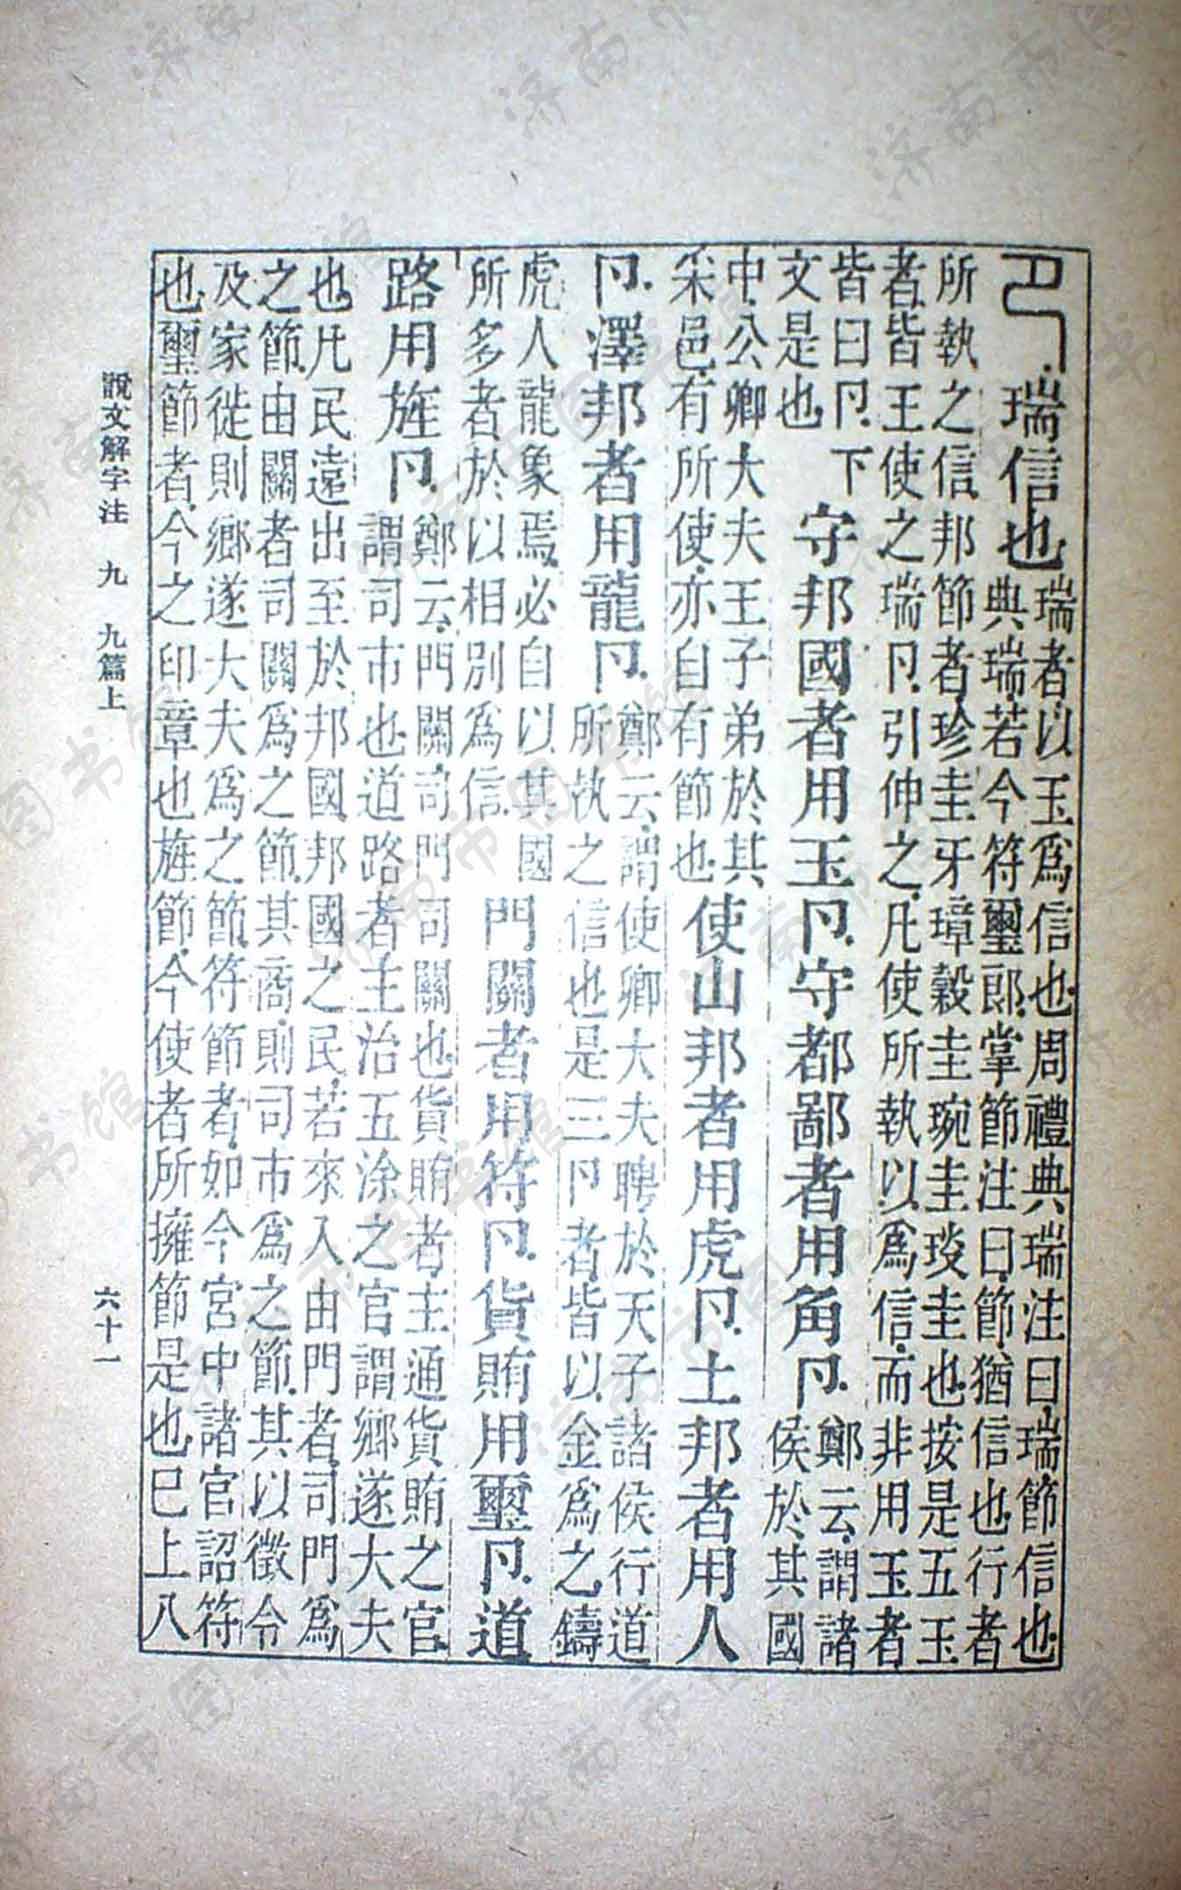 卪瑞信也
瑞者以玉爲信也周禮典瑞注曰瑞節信也
典瑞若今符璽郎掌節注曰節猶信也行者
所執之信邦節者珍圭牙璋穀圭琬圭琰圭也按是五玉
者皆王使之瑞卪引伸之凡使所執以爲信而非用玉者
皆曰卪下
文是也
守邦國者用玉卪守都鄙者用角卪
鄭云謂諸
侯於其國
中公卿大夫王子弟於其
采邑有所使亦自有節也
使山邦者用虎卪土邦者用人
卪澤邦者用龍卪
鄭云謂使卿大夫聘於天子諸侯行道
所執之信也是三卪者皆以金爲之鑄
虎人龍象焉必自以其國
所多者於以相別爲信
門關者用符卪貨賄用璽卪道
路用旌卪
鄭云門關司門司關也貨賄者主通貨賄之官
謂司市也道路者主治五涂之官謂鄉遂大夫
也凡民遠出至於邦國邦國之民若來入由門者司門爲
之節由關者司關爲之節其商則司市爲之節其以徵令
及家徙則鄉遂大夫爲之節符節者如今宮中諸官詔符
也璽節者今之印章也旌節今使者所擁節是也巳上八
說文解字注 九 九篇上 六十一
济南市图书馆